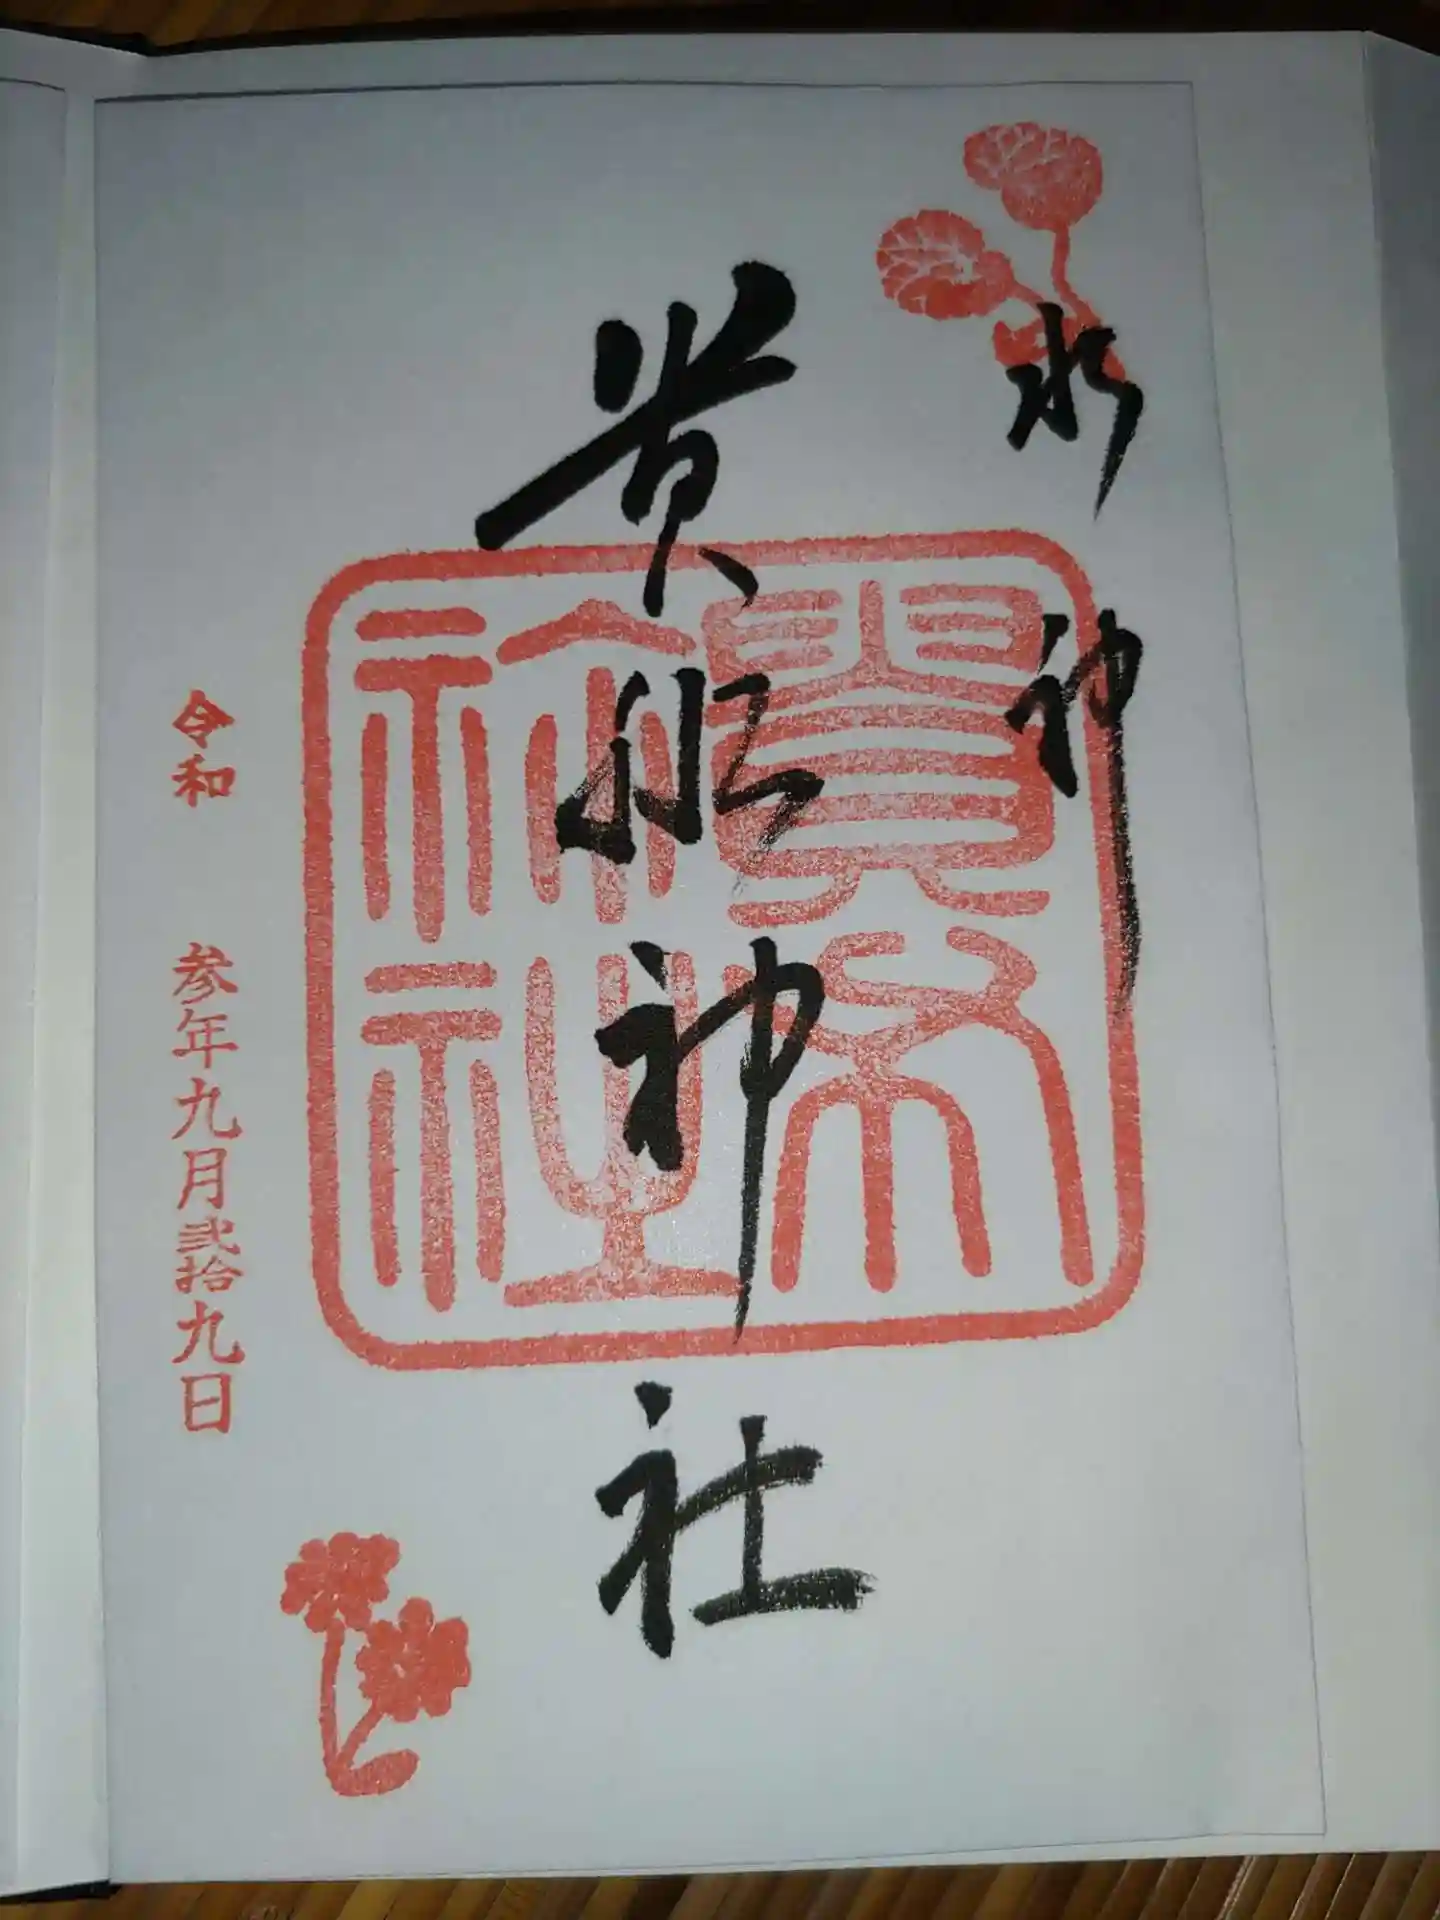 水神
貴船神社
貴布祢社
令和 参年九月弐拾九日